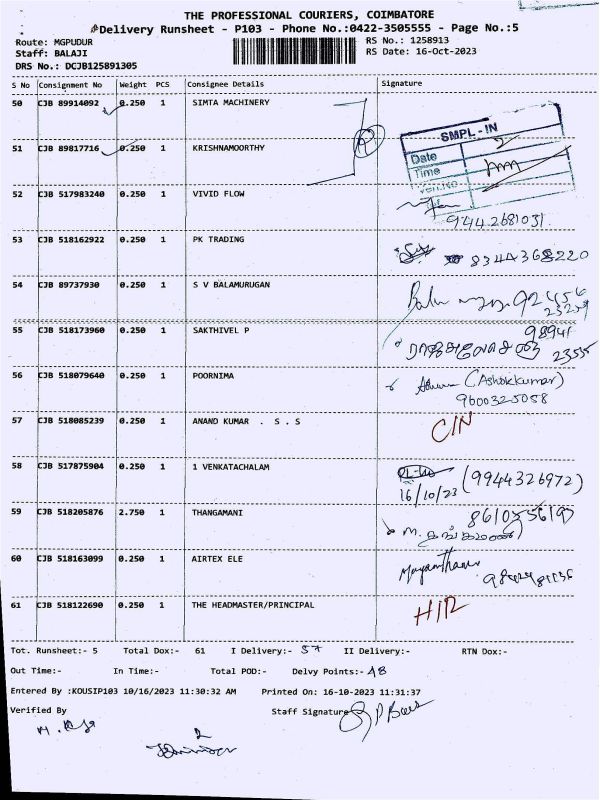 THE PROFESSIONAL COURIERS, COIMBATORE
Delivery Runsheet - P103 - Phone No.:0422-3505555 - Page No.:5
Route: MGPUDUR RS No.: 1258913
Staff: BALAJI RS Date: 16-Oct-2023
DRS No.: DCJB125891305
S No Consignment No Weight PCS Consignee Details Signature
50 CJB 89914092 0.250 1 SIMTA MACHINERY
SMPL-IN
Date 2
Time
51 CJB 89817716 0.250 1 KRISHNAMOORTHY
52 CJB 517983240 0.250 1 VIVID FLOW
9442681031
53 CJB 518162922 0.250 1 PK TRADING 8344368220
54 CJB 89737930 0.250 1 S V BALAMURUGAN 92456
23259
55 CJB 518173960 0.250 1 SAKTHIVEL P 98941
23555
56 CJB 518079640 0.250 1 POORNIMA (Ashokkumar)
9600325058
57 CJB 518085239 0.250 1 ANAND KUMAR . S . S C/N
58 CJB 517875904 0.250 1 1 VENKATACHALAM (9944326972)
16/10/23
59 CJB 518205876 2.750 1 THANGAMANI
M. தங்கமணி
60 CJB 518163099 0.250 1 AIRTEX ELE
61 CJB 518122690 0.250 1 THE HEADMASTER/PRINCIPAL
Tot. Runsheet:- 5 Total Dox:- 61 I Delivery:- 57 II Delivery:- RTN Dox:-
Out Time:- In Time:- Total POD:- Delvy Points:- 48
Entered By :KOUSIP103 10/16/2023 11:30:32 AM Printed On: 16-10-2023 11:31:37
Verified By Staff Signature